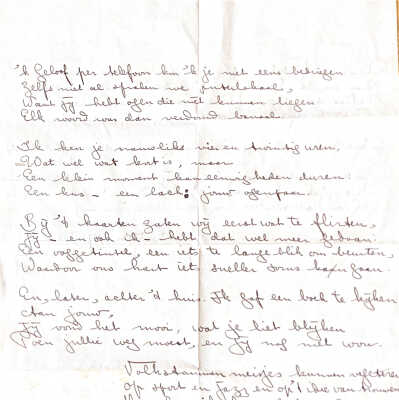 'k Geloof per telefoon kun 'k je niet eens bedriegen
Zelfs niet al spraken we interlokaal,
Want jij hebt ogen die niet kunnen liegen
Elk woord was dan verdomd banaal.
Ik ken je namelijks vier en twintig uren,
Wat wel wat kort is, maar
Een klein moment kan eeuwigheden duren:
Een kus – een lach: jouw ogenpaar.
Bij 't kaarten zaten wij eerst wat te flirten,
Jij – en ook ik – hebt dat wel meer gedaan.
Een oogje, een iets te lange blik om beurten,
Waardoor ons hart iets sneller soms kan gaan.
En, later, achter 't huis. Ik gaf een boek te kijken
Aan jouw,
Jij vond het mooi, wat je liet blijken
Toen jullie weg moest, en jij nog niet wou.
Volksdansen meisjes kunnen
op sport en jazz en op 't idee van trouwen